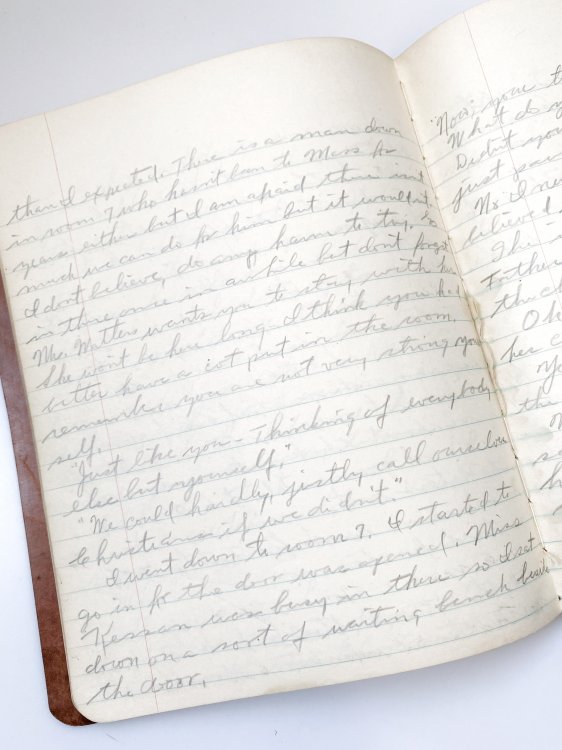 than I expected. There is a man down
in room 7 who hasn't been to Mass for
years either but I am afraid there isn't
much we can do for him but it wouldn't
I dont believe, do any harm to try. Go
in there once in awhile but don't forget
Mrs. Matters wants you to stay with her
She won't be here long. I think you had
better have a cot put in the room,
remember you are not very strong your
self.
"Just like you - Thinking of everybody
else but yourself."
"We could hardly, justly call ourselves
Christians if we didn't."
I went down to room 7. I started to
go in for the door was opened. Miss
Kessan was busy in there so I sat
down on a sort of waiting bench beside
the door.
"Now, you're
What do
Didn't you
just
No I
believe I
The
Father
the
Oh
her
the